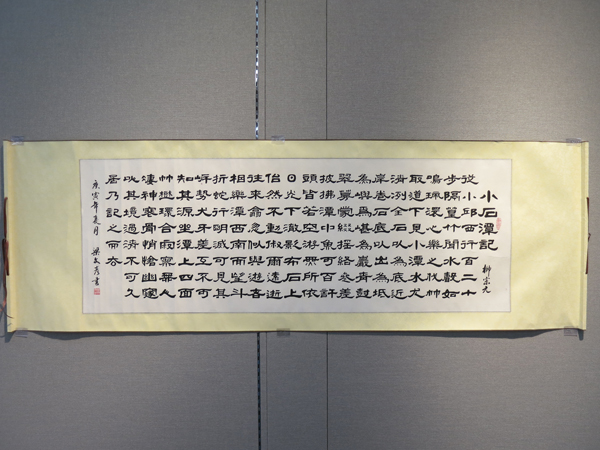 小石潭記
柳宗元
從小邱西行百二十
步隔篁竹聞水聲如
鳴珮環心樂之伐竹
取道下見小潭水尤
清冽全石以為底近
岸卷石底以出為坻
為嶼為嵁為巖青樹
翠蔓蒙絡搖綴參差
披拂潭中魚可百許
頭皆若空游無所依
日光下澈影布石上
佁然不動俶爾遠逝
往來翕忽似與遊者
相樂潭西南而望斗
折蛇行明滅可見其
岸勢犬牙差互不可
知其源坐潭上四面
竹樹環合寂寥無人
凄神寒骨悄愴幽邃
以其境過清不可久
居乃記之而去
庚寅年夏月 梁文書